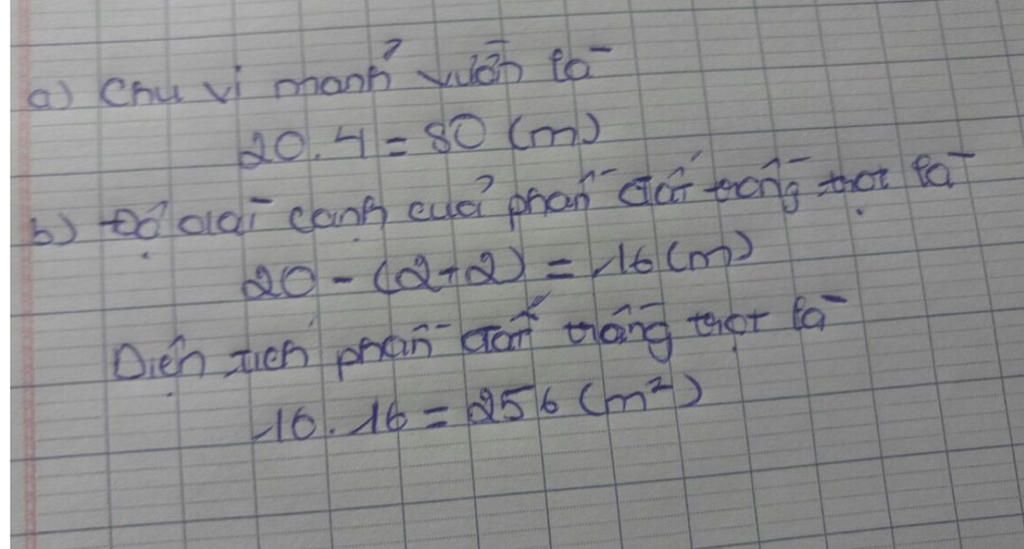 a) Chu vi mảnh vườn là
20.4 = 80 (m)
b) Độ dài cạnh của phần đất trồng trọt là
20 - (2+2) = 16 (m)
Diện tích phần đất trồng trọt là
16.16 = 256 (m²)